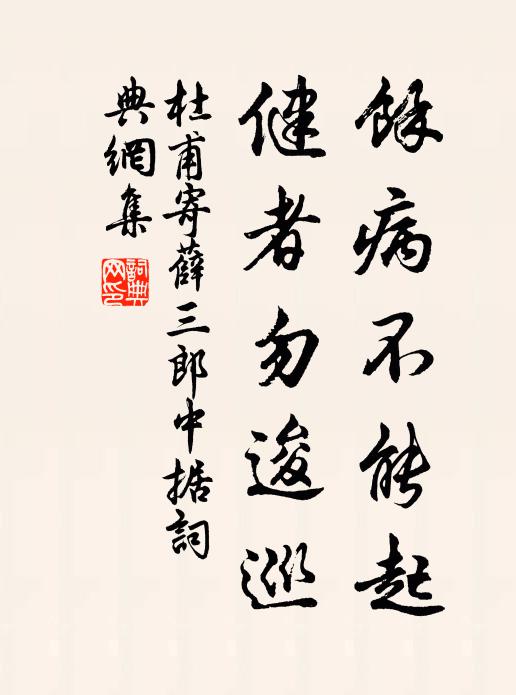 餘病不能起
健者勿逡巡
杜甫寄薛三郎中据詞
典網集
詞典
网印